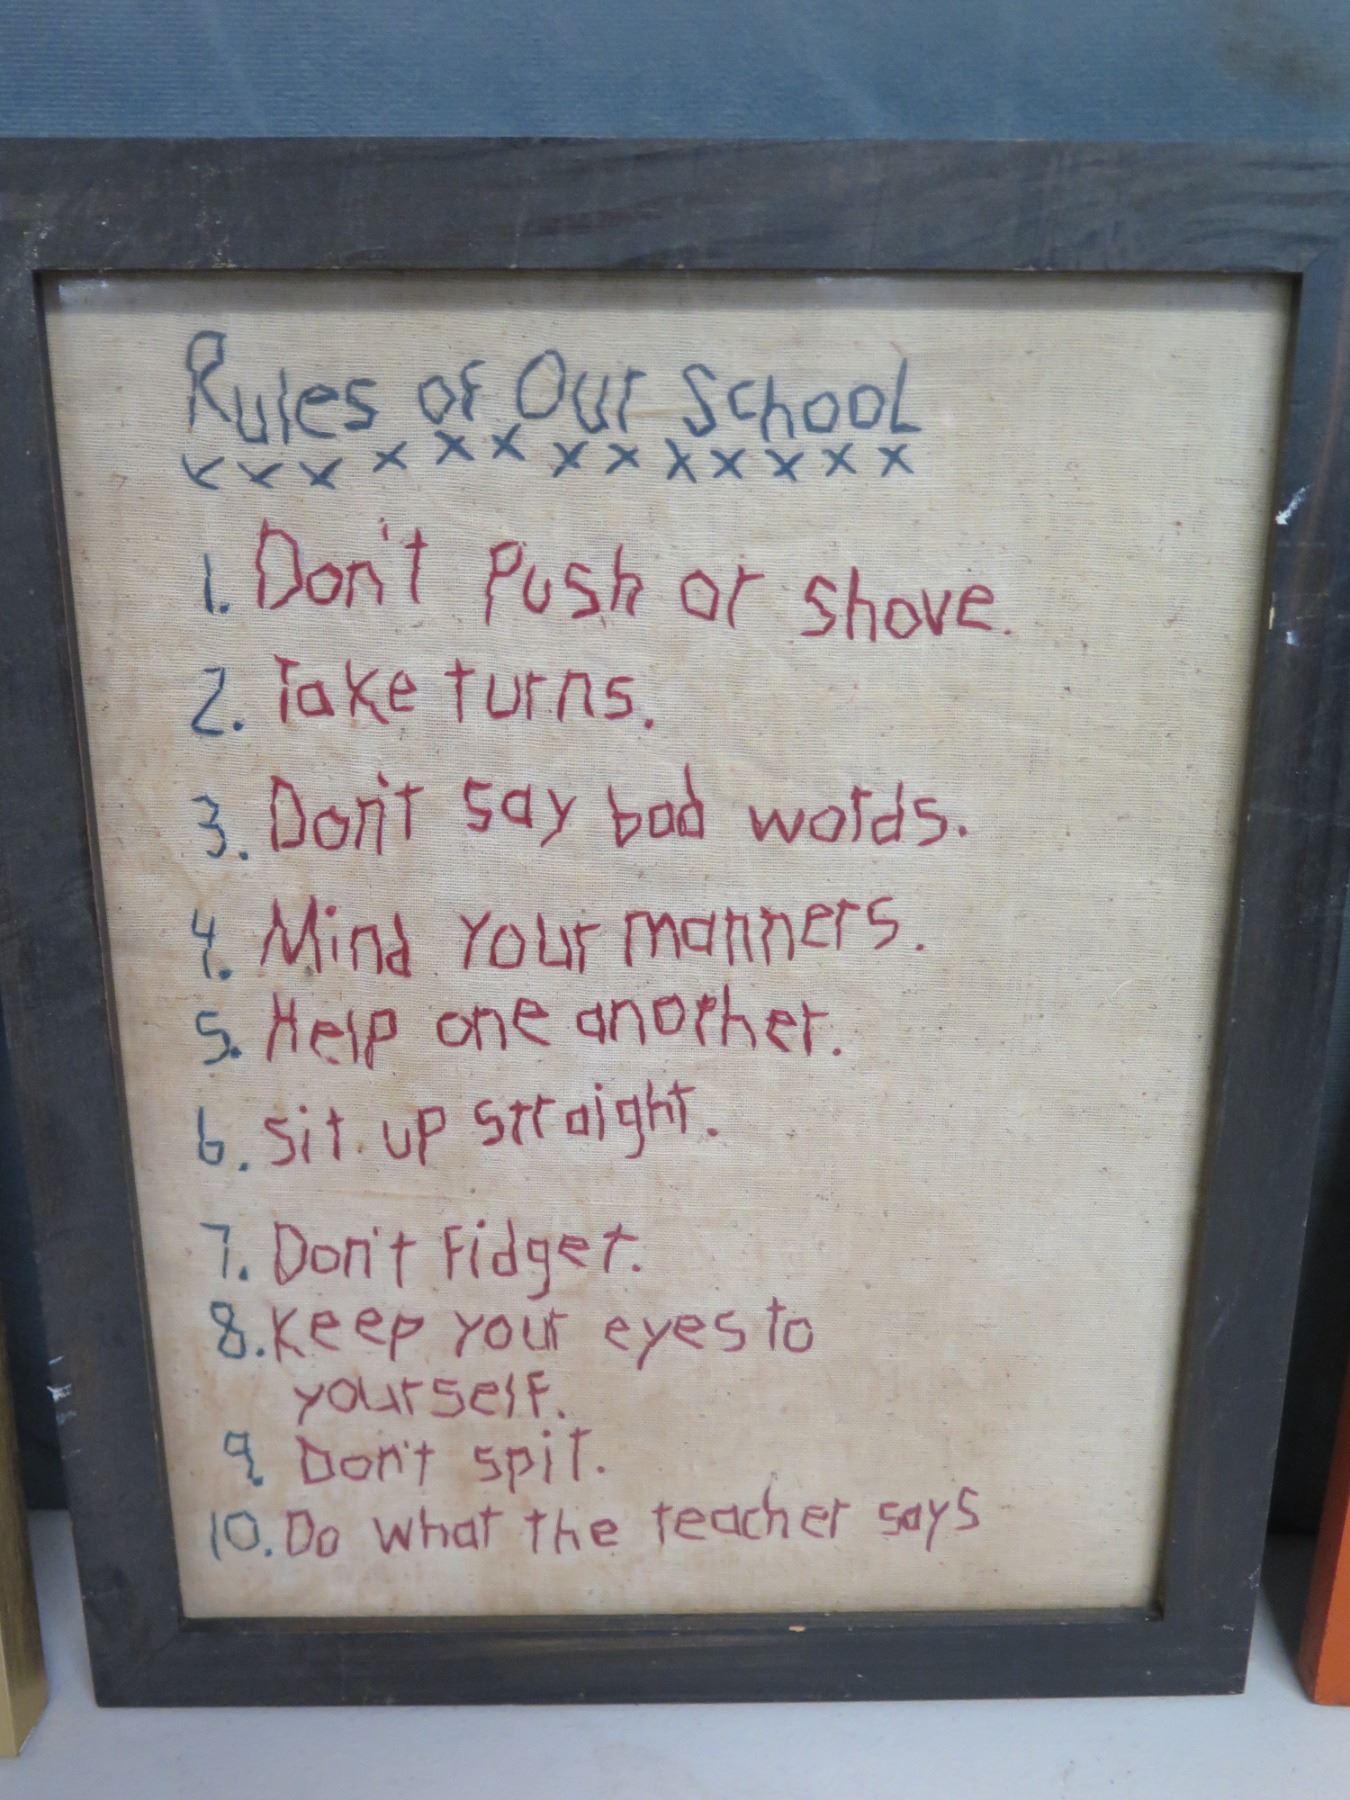 Rules of Our School
x x x x x x x x x x x x x
1. Don't Push or shove.
2. Take turns.
3. Don't say bad words.
4. Mind Your manners.
5. Help one another.
6. Sit up straight.
7. Don't Fidget.
8. Keep your eyes to
yourself.
9. Don't spit.
10. Do what the teacher says